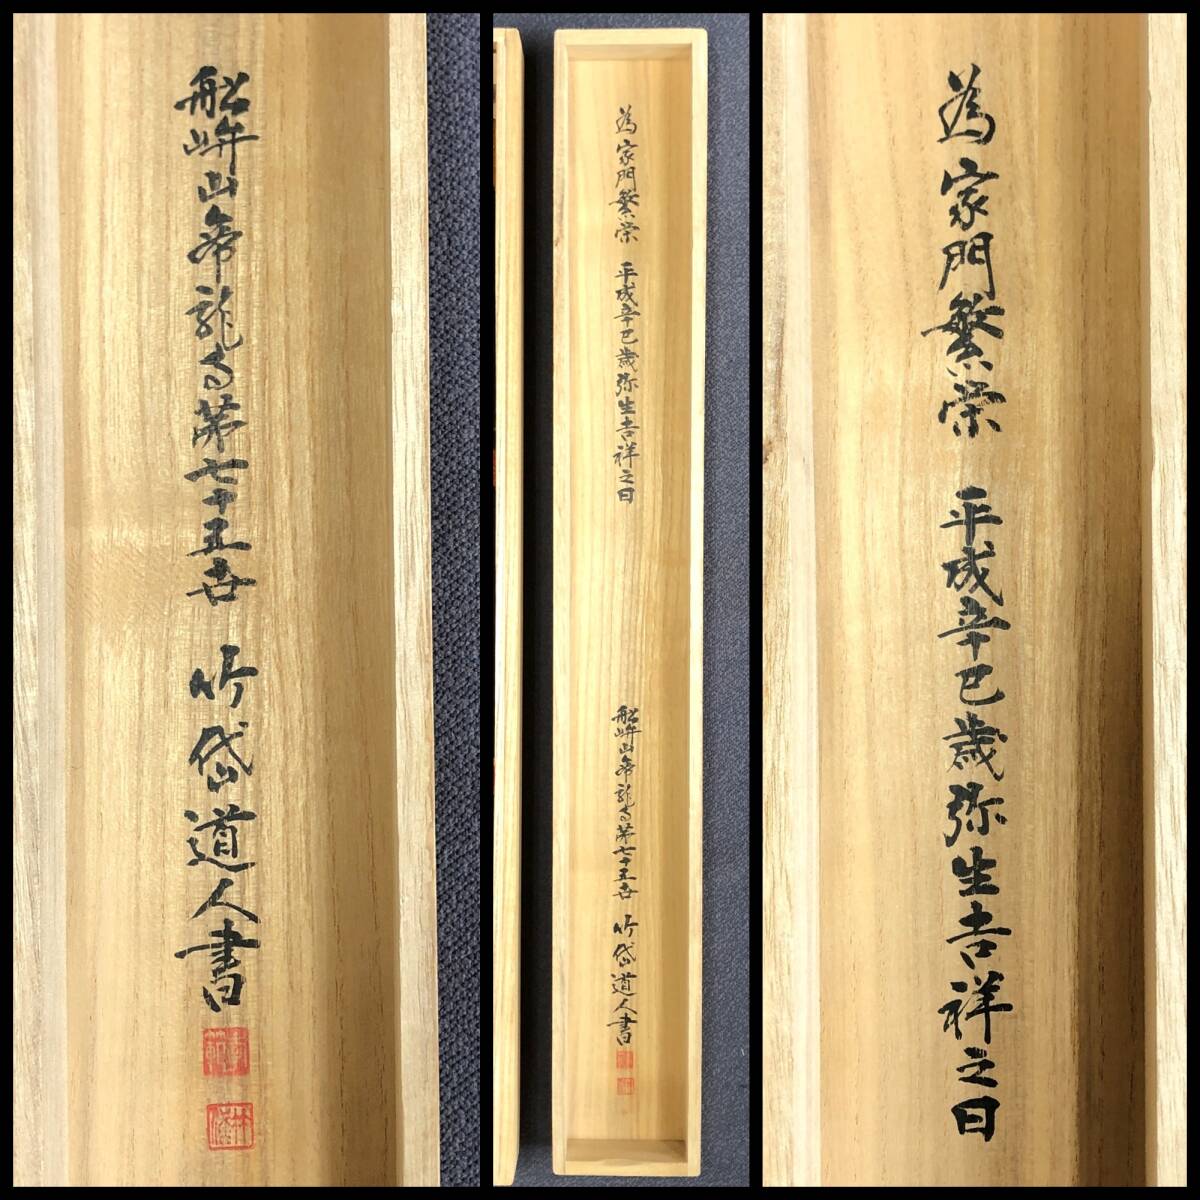 舩峅山帝龍寺第七十五世 竹岱道人書
為家門繁栄 平成辛巳歳弥生吉祥之日
舩峅山帝龍寺第七十五世 竹岱道人書
為家門繁栄 平成辛巳歳弥生吉祥之日